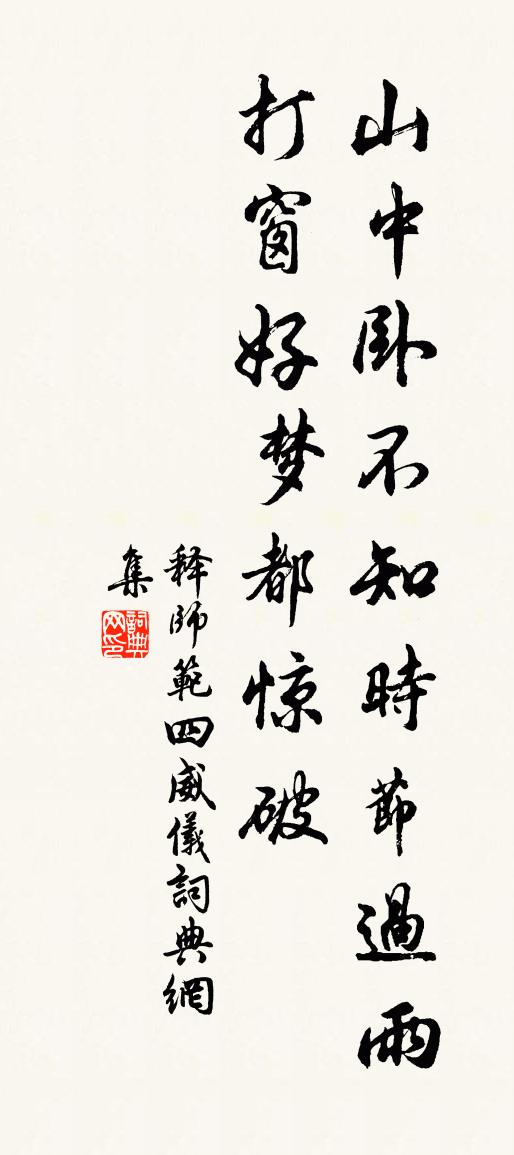 山中卧不知時節過雨
打窗好梦都惊破
释師範四威儀詞典網
集
詞典网印